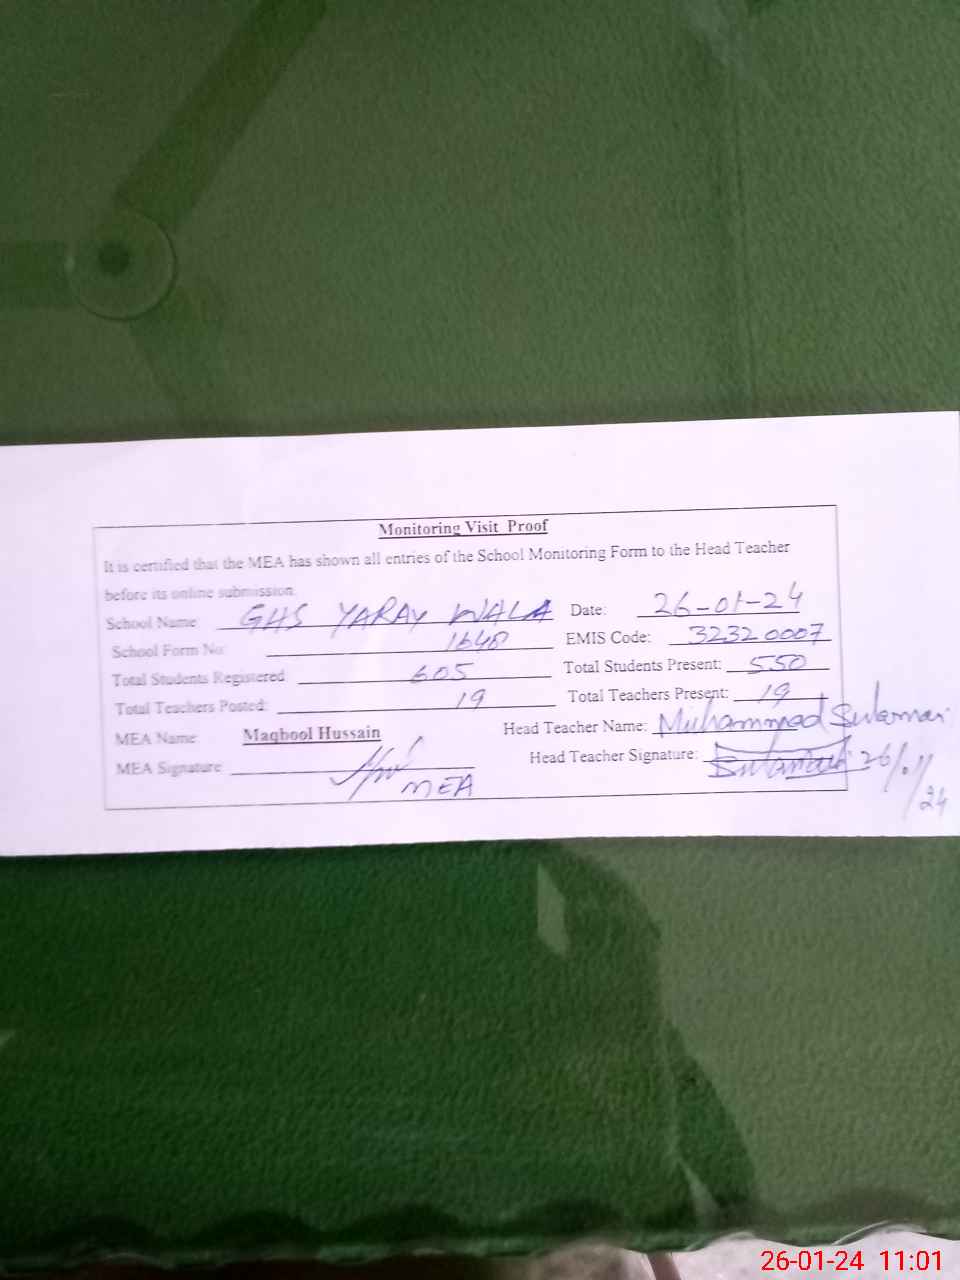 Monitoring Visit Proof
It is certified that the MEA has shown all entries of the School Monitoring Form to the Head Teacher
before its online submission.
School Name: GHS YARAY WALA Date: 26-01-24
School Form No: 1640 EMIS Code: 32320007
Total Students Registered: 605 Total Students Present: 550
Total Teachers Posted: 19 Total Teachers Present: 19
MEA Name: Maqbool Hussain Head Teacher Name: Muhammad Suleman
MEA Signature: MEA Head Teacher Signature: 26/01/24
26-01-24 11:01